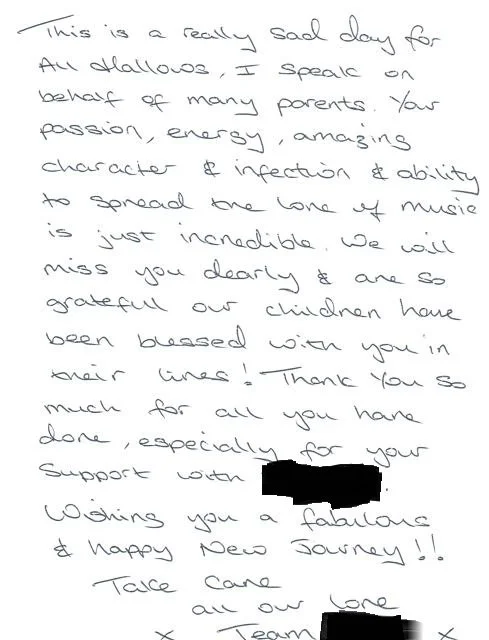 This is a really sad day for
All Hallows, I speak on
behalf of many parents. Your
passion, energy, amazing
character & infection & ability
to spread the love of music
is just incredible. We will
miss you dearly & are so
grateful our children have
been blessed with you in
their lives! Thank You so
much for all you have
done, especially for your
Support with
Wishing you a fabulous
& happy New Journey!!
Take Care
all our love
x Team x